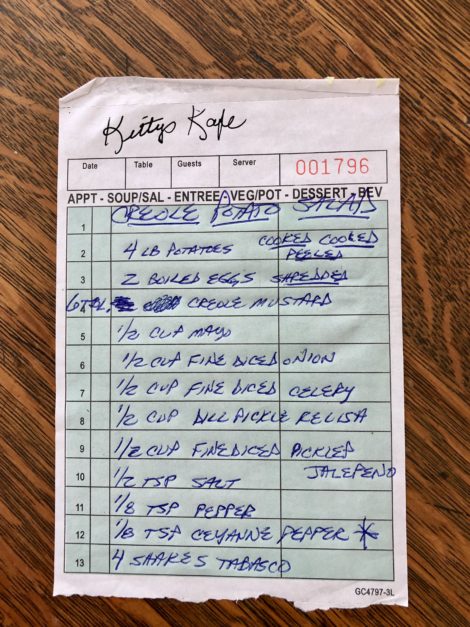 Kittys Kafe
Date Table Guests Server 001796
APPT - SOUP/SAL - ENTREE - VEG/POT - DESSERT - BEV
1 CREOLE POTATO SALAD
2 4 LB POTATOES COOKED COOKED
PEELED
3 2 BOILED EGGS SHREDDED
6 TBL. CREOLE MUSTARD
5 1/2 CUP MAYO
6 1/2 CUP FINE DICED ONION
7 1/2 CUP FINE DICED CELERY
8 1/2 CUP DILL PICKLE RELISH
9 1/2 CUP FINE DICED PICKLED
JALEPENO
10 1/2 TSP SALT
11 1/8 TSP PEPPER
12 1/8 TSP CEYANNE PEPPER *
13 4 SHAKES TABASCO
GC4797-3L